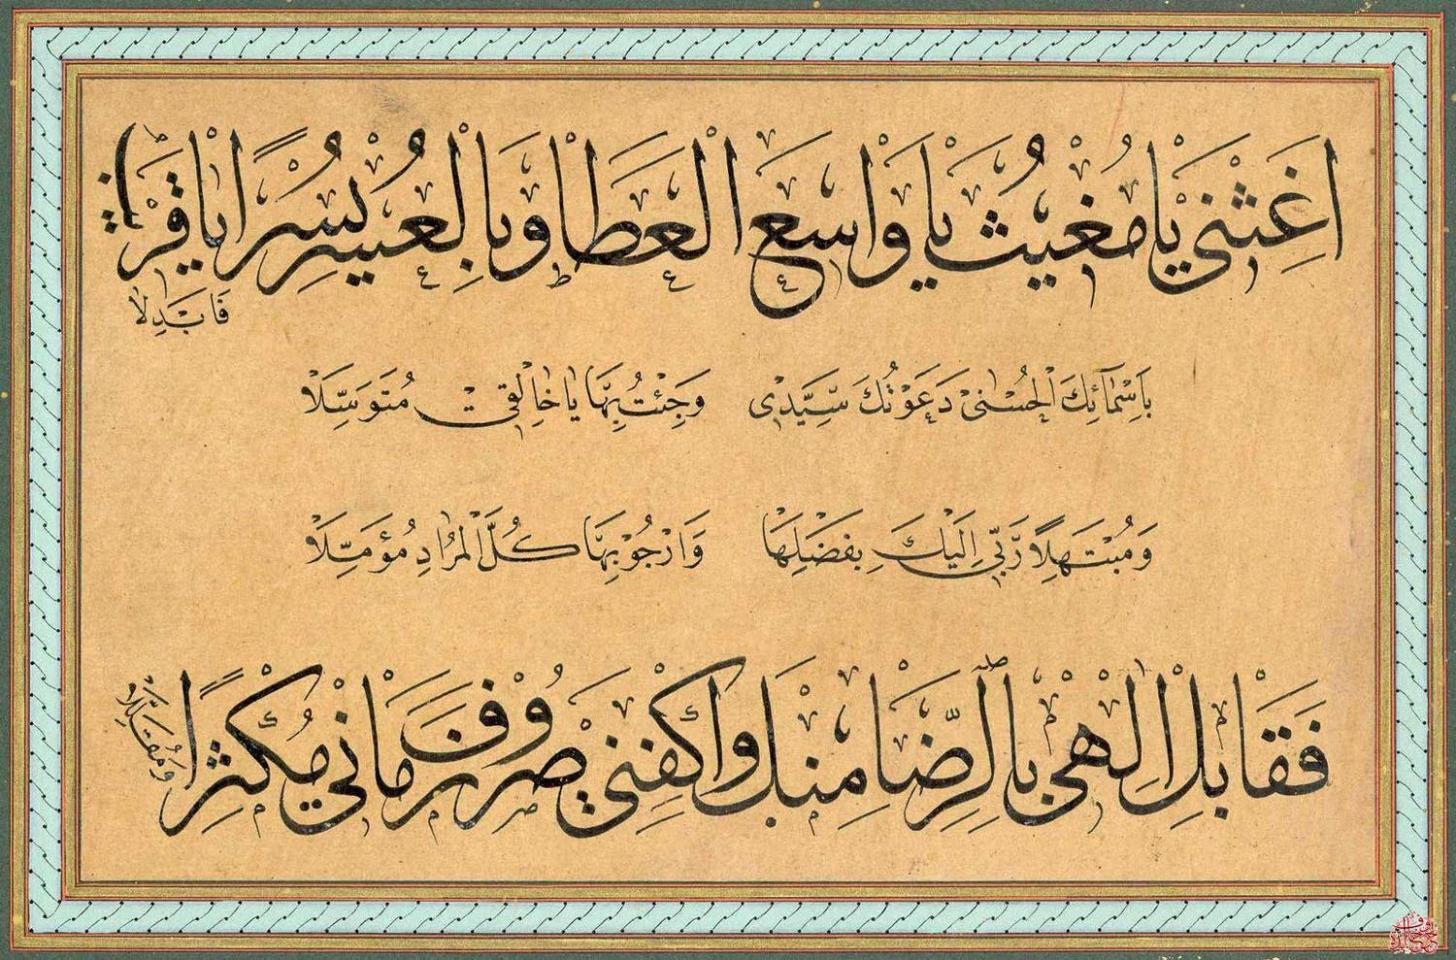 اَغِثْنى يَا مُغيثُ يَا وَاسِعَ الْعَطَا وَبِالْعُسْرِ يُسْرًا يَا قَرِيبًا
فَابْدِلَا
بِاَسْمَآئِكَ الْحُسْنى دَعَوْتُكَ سَيِّدى وَجِئْتُ بِهَا يَا خَالِقى مُتَوَسِّلًا
وَمُبْتَهِلًا رَبّى اِلَيْكَ بِفَضْلِهَا وَاَرْجُو بِهَا كُلَّ الْمُرَادِ مُؤَمِّلًا
فَقَابِلْ اِلهى بِالرِّضَا مِنْكَ وَاكْفِنى صُرُوفَ زَمَانى مُكْثِرًا وَمُقَلِّلًا